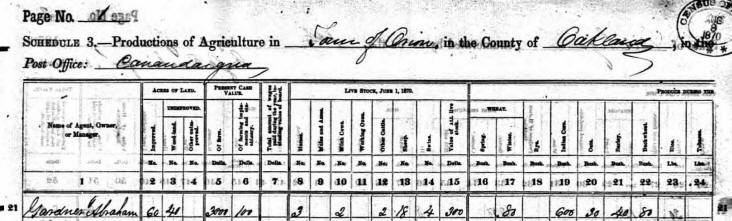 Page No. 1
CENSUS OF 1870
SCHEDULE 3.—Productions of Agriculture in Town of Orion, in the County of Oakland, in the
Post Office: Canandaigua
Name of Agent, Owner, or Manager. ACRES OF LAND. PRESENT CASH VALUE. LIVE STOCK, JUNE 1, 1870. PRODUCE DURING THE
UNIMPROVED. WHEAT.
Improved. Woodland. Other unimproved. Of farm. Of farming implements and machinery. Total amount of wages paid during the year, including value of board. Horses. Mules and Asses. Milch Cows. Working Oxen. Other Cattle. Sheep. Swine. Value of ALL live stock. Spring. Winter. Rye. Indian Corn. Oats. Barley. Buckwheat. Rice. Tobacco.
No. No. No. Dolls. Dolls. Dolls. No. No. No. No. No. No. No. Dolls. Bush. Bush. Bush. Bush. Bush. Bush. Bush. Lbs. Lbs.
1 2 3 4 5 6 7 8 9 10 11 12 13 14 15 16 17 18 19 20 21 22 23 24
21 Gardner Abraham 60 40 3000 100 3 2 2 18 4 300 80 600 30 40 80 21